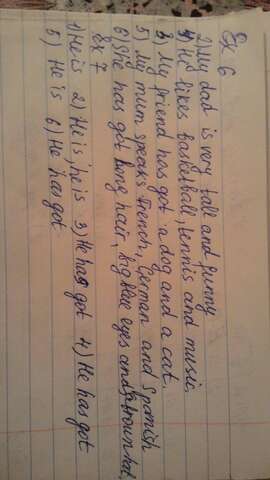 Ex 6
2) My dad is very tall and funny
4) He likes basketball, tennis and music.
3) My friend has got a dog and a cat.
5) My mum speaks French, German and Spanish
6) She has got long hair, big blue eyes and a brown hat.
Ex 7
1) He is 2) He is, he is 3) He has got 4) He has got
5) He is 6) He has got